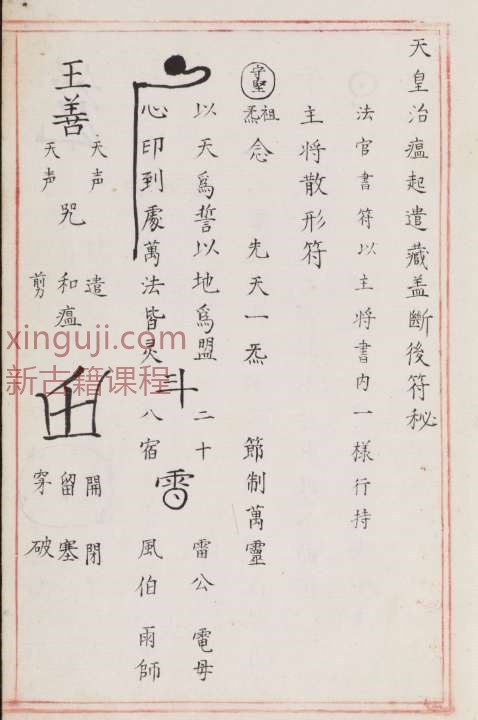 天皇治瘟起遣藏盖斷後符秘
法官書符以主將書内一樣行持
主將散形符
守堅
祖炁 念 先天一炁 節制萬靈
以天爲誓以地爲盟 斗 二十 雷公 電母
心印到處萬法皆灵 八宿 雷 風伯 雨師
王善
天声 天声 咒
遣 和瘟 剪
開 閉 留 塞 穿 破
xinguji.com
新古籍课程